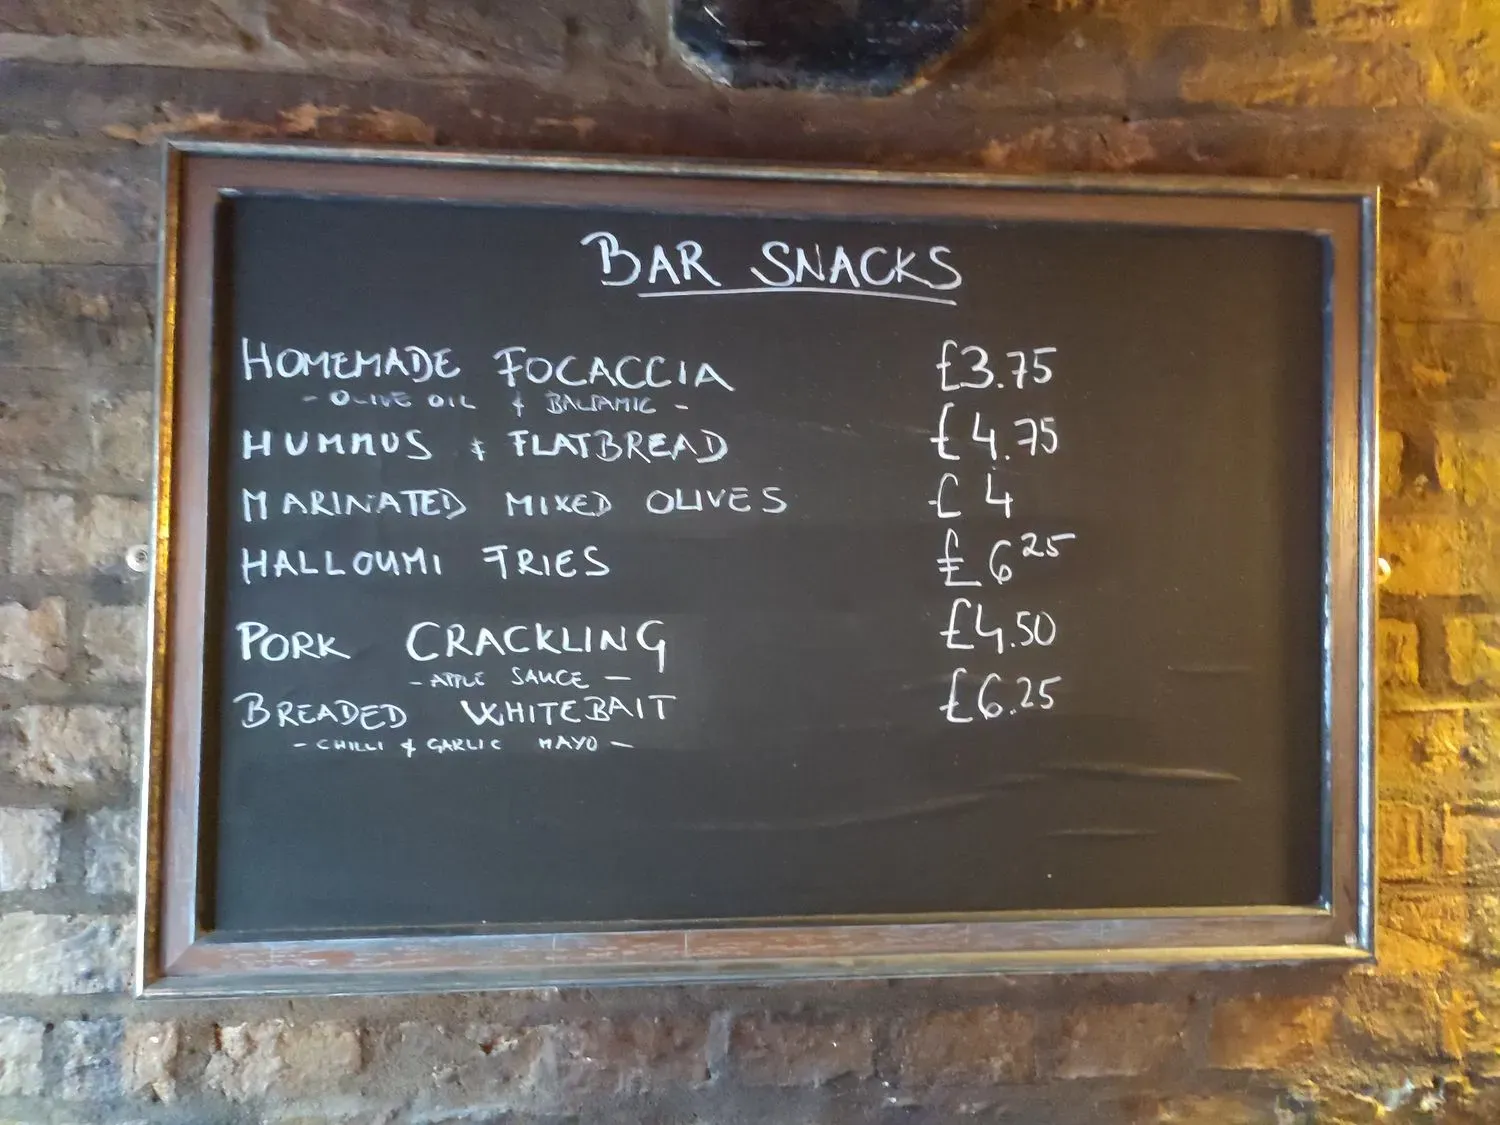 BAR SNACKS
HOMEMADE FOCACCIA £3.75
- OLIVE OIL & BALSAMIC -
HUMMUS & FLATBREAD £4.75
MARINATED MIXED OLIVES £4
HALLOUMI FRIES £6 25
PORK CRACKLING £4.50
- APPLE SAUCE -
BREADED WHITEBAIT £6.25
- CHILLI & GARLIC MAYO -